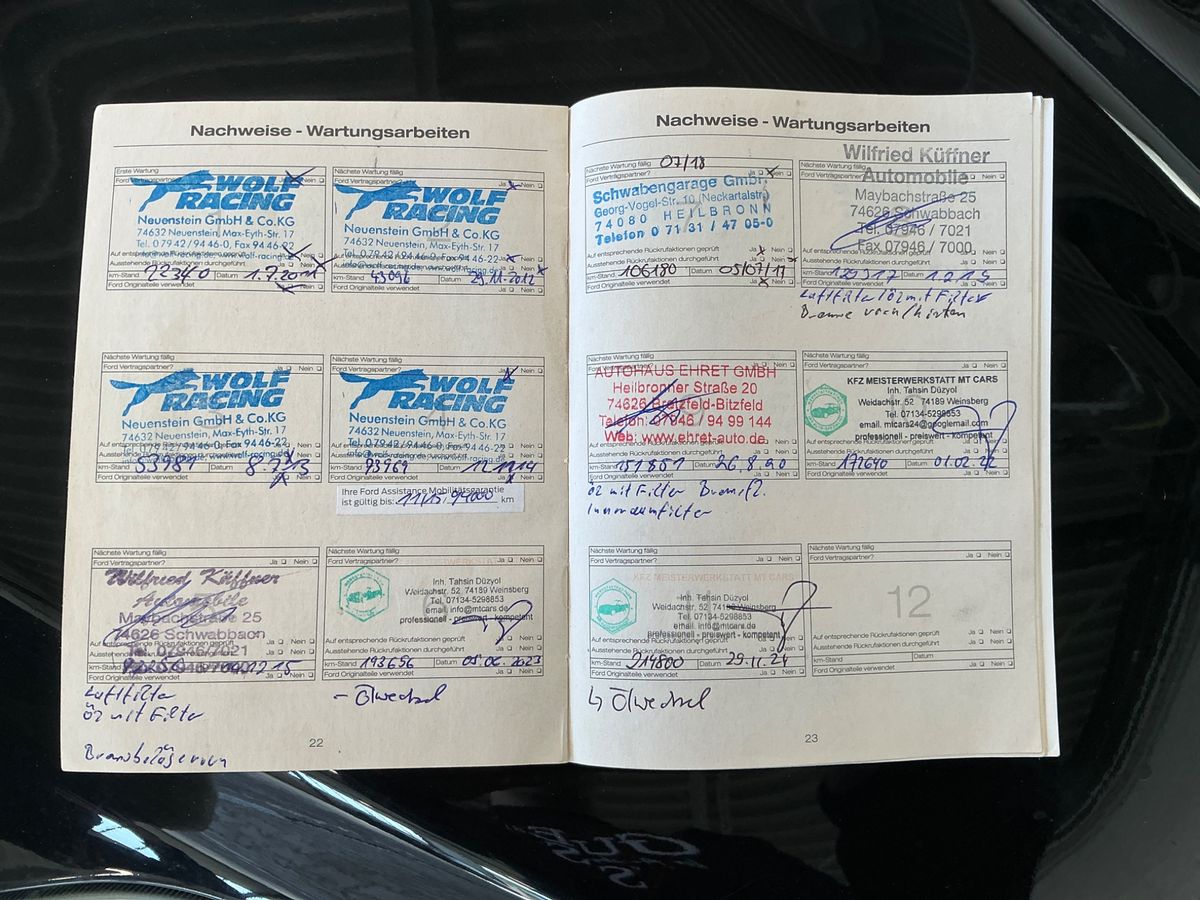 Nachweise - Wartungsarbeiten
Erste Wartung
Ford Vertragspartner?
Ja Nein
WOLF
RACING
Neuenstein GmbH & Co.KG
74632 Neuenstein, Max-Eyth-Str. 17
Tel. 0 79 42 / 94 46-0, Fax 94 46-22
Auf entsprechende Rückrufaktionen geprüft
Ausstehende Rückrufaktionen durchgeführt
km-Stand 22340 Datum
Ford Originalteile verwendet
Nächste Wartung fällig
Ford Vertragspartner?
Ja Nein
WOLF
RACING
Neuenstein GmbH & Co.KG
74632 Neuenstein, Max-Eyth-Str. 17
Tel. 0 79 42 / 94 46-0, Fax 94 46-22
km-Stand 43096 Datum 29.11.2012
Ford Originalteile verwendet
Nächste Wartung fällig
Ford Vertragspartner?
WOLF
RACING
Neuenstein GmbH & Co.KG
74632 Neuenstein, Max-Eyth-Str. 17
Tel. 0 79 42 / 94 46-0, Fax 94 46-22
km-Stand 53981 Datum 8.7.13
Ford Originalteile verwendet
Nächste Wartung fällig
Ford Vertragspartner?
Ja Nein
WOLF
RACING
Neuenstein GmbH & Co.KG
74632 Neuenstein, Max-Eyth-Str. 17
Tel. 0 79 42 / 94 46-0, Fax 94 46-22
km-Stand 93969 Datum
Ford Originalteile verwendet
Ihre Ford Assistance Mobilitätsgarantie
ist gültig bis: 11/15, km
Nächste Wartung fällig
Ford Vertragspartner?
Ja Nein
Wilfried Küffner
Automobile
Maybachstraße 25
74626 Schwabbach
Auf entsprechende Rückrufaktionen geprüft
Ausstehende Rückrufaktionen durchgeführt
km-Stand
Ford Originalteile verwendet
Luftfilter
Öl mit Filter
Nächste Wartung fällig
Ford Vertragspartner?
Ja Nein
Inh. Tahsin Düzyol
Weidachstr. 52 74189 Weinsberg
Tel. 07134-5298853
email info@mtcars.de
professionell - preiswert - kompetent
Auf entsprechende Rückrufaktionen geprüft
Ausstehende Rückrufaktionen durchgeführt
km-Stand 193656 Datum 05.06.2023
Ford Originalteile verwendet
- Ölwechsel
22
Nachweise - Wartungsarbeiten
Nächste Wartung fällig 07/18
Ford Vertragspartner?
Ja Nein
Schwabengarage GmbH
Georg-Vogel-Str. 10 (Neckartalstr.)
74080 HEILBRONN
Telefon 0 71 31 / 47 05-0
Auf entsprechende Rückrufaktionen geprüft
Ausstehende Rückrufaktionen durchgeführt
km-Stand 106180 Datum 05/07/17
Ford Originalteile verwendet
Nächste Wartung fällig
Wilfried Küffner
Automobile
Maybachstraße 25
74626 Schwabbach
Tel. 07946 / 7021
Fax 07946 / 7000
Ausstehende Rückrufaktionen durchgeführt
km-Stand Datum
Ford Originalteile verwendet
Luftfilter Öl mit Filter
Nächste Wartung fällig
AUTOHAUS EHRET GMBH
Heilbronner Straße 20
74626 Bretzfeld-Bitzfeld
Telefon: 07946 / 94 99 144
Web: www.ehret-auto.de
km-Stand 151851 Datum 26.8.20
Ford Originalteile verwendet
Öl mit Filter
Innenraumfilter
Nächste Wartung fällig
KFZ MEISTERWERKSTATT MT CARS
Inh. Tahsin Düzyol
Weidachstr. 52 74189 Weinsberg
Tel. 07134-5298853
email. mtcars24@googlemail.com
professionell - preiswert - kompetent
km-Stand 172640 Datum 01.02.22
Ford Originalteile verwendet
Nächste Wartung fällig
Ford Vertragspartner?
Ja Nein
KFZ MEISTERWERKSTATT MT CARS
Inh. Tahsin Düzyol
Weidachstr. 52 74189 Weinsberg
Tel. 07134-5298853
email. info@mtcars.de
professionell - preiswert - kompetent
Auf entsprechende Rückrufaktionen geprüft
Ausstehende Rückrufaktionen durchgeführt
km-Stand 214800 Datum 29.11.24
Ford Originalteile verwendet
↳ Ölwechsel
Nächste Wartung fällig
Ford Vertragspartner?
Ja Nein
12
Auf entsprechende Rückrufaktionen geprüft
Ausstehende Rückrufaktionen durchgeführt
km-Stand Datum
Ford Originalteile verwendet
23